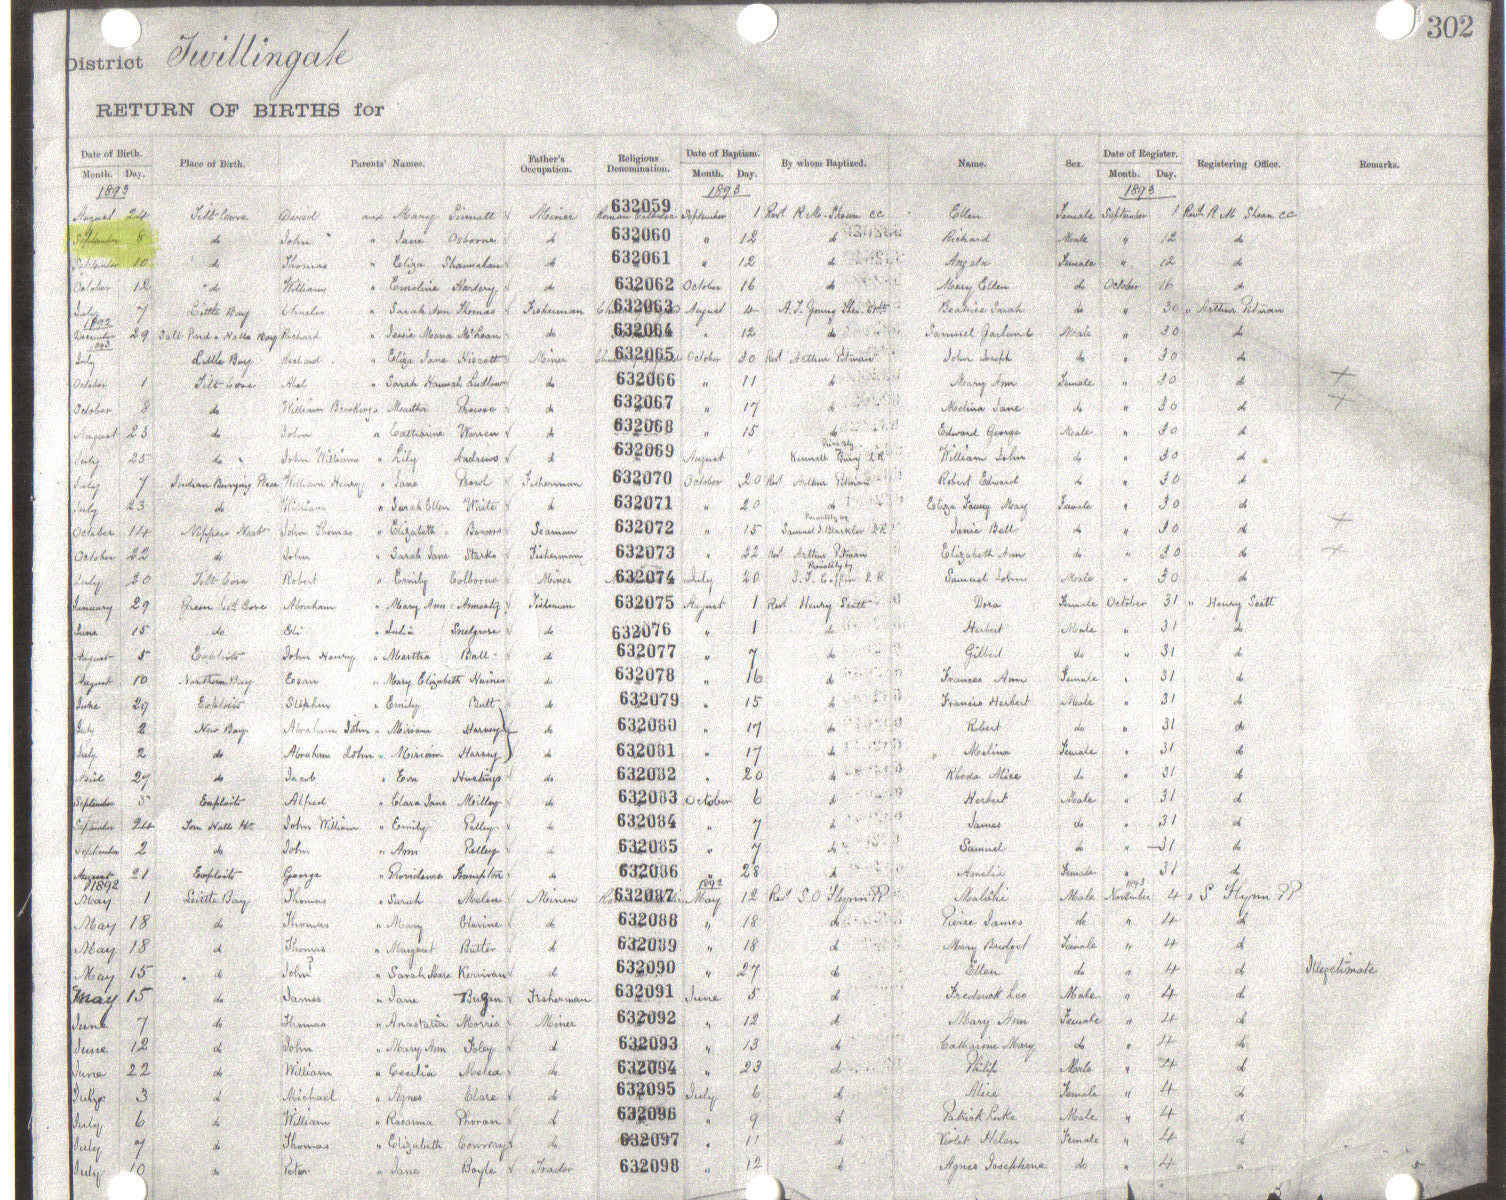 302
District Twillingate
RETURN OF BIRTHS for
Date of Birth. Place of Birth. Parents' Names. Father's Occupation. Religious Denomination. Date of Baptism. By whom Baptized. Name. Sex. Date of Register. Registering Office. Remarks.
Month. Day. Month. Day. Month. Day.
1893 1893 1893
August 24 Tilt Cove David and Mary Miner 632059 Roman Catholic September 1 Revd R M Shean CC Ellen Female September 1 Revd R M Shean CC
September 8 do John " Jane Osborne do 632060 " 12 do Richard Male " 12 do
September 10 do Thomas " Eliza Shannahan do 632061 " 12 do Angela Female " 12 do
October 12 do William " Emeline Hartery do 632062 October 16 do Mary Ellen do October 16 do
July 7 Little Bay Charles " Sarah Ann Thomas Fisherman 632063 August 4 A. T. Young Beatrice Sarah do " 30 " Arthur Pitman
1892
December 29 Halls Bay Richard " Jessie Mona McLean do 632064 " 12 do Samuel Garland Male " 30 do
1893
July Little Bay Richard " Eliza Jane Miner 632065 October 30 Revd Arthur Pitman John Joseph do " 30 do
October 1 Tilt Cove Abel " Sarah Hannah Ludlow do 632066 " 11 do Mary Ann Female " 30 do +
October 8 do William Brooking " Martha Prowse do 632067 " 17 do Melina Jane do " 30 do +
August 23 do John " Catharine Warren do 632068 " 15 do Edward George Male " 30 do
July 25 do John William " Lily Andrews do 632069 August Privately Kenneth L R William John do " 30 do
July 7 Indian Burying Place William Henry " Jane Fisherman 632070 October 20 Revd Arthur Pitman Robert Edward do " 30 do
July 23 do William " Sarah Ellen White do 632071 " 20 do Eliza Fanny May Female " 30 do
October 14 Nippers Harbr John Thomas " Elizabeth Bowers Seaman 632072 " 15 Privately by Samuel J. Blackler L R Janie Bell do " 30 do +
October 22 do John " Sarah Jane Starks Fisherman 632073 " 22 Revd Arthur Pitman Elizabeth Ann do " 30 do +
July 20 Tilt Cove Robert " Emily Colborne Miner 632074 July 20 Privately by Coffin L R Samuel John Male " 30 do
January 29 Cove Abraham " Mary Ann Fisherman 632075 August 1 Revd Henry Scott Dora Female October 31 " Henry Scott
June 15 do Eli " Julia Snelgrove do 632076 " 1 do Herbert Male " 31 do
August 5 Exploits John Henry " Martha Ball do 632077 " 7 do Gilbert do " 31 do
August 10 Northern Bay Esau " Mary Elizabeth Haines do 632078 " 16 do Frances Ann Female " 31 do
June 29 Exploits Stephen " Emily Butt do 632079 " 15 do Francis Herbert Male " 31 do
July 2 New Bay Abraham John " Miriam Harvey do 632080 " 17 do Robert do " 31 do
July 2 do Abraham John " Miriam Harvey do 632081 " 17 do Melina Female " 31 do
April 27 do Jacob " Eva Hustings do 632082 " 20 do Rhoda Alice do " 31 do
September 5 Exploits Alfred " Clara Jane Milley do 632083 October 6 do Herbert Male " 31 do
September 24 Halls Hr John William " Emily Pelley do 632084 " 7 do James do " 31 do
September 2 do John " Ann Pelley do 632085 " 7 do Samuel do " 31 do
August 21 Exploits George " Providence Frampton do 632086 " 28 do Amelia Female " 31 do
1892 1892 1893
May 1 Little Bay Thomas " Sarah Melea Miner 632087 May 12 Revd S O Flynn PP Malichi Male November 4 " S Flynn PP
May 18 do Thomas " Mary Glavine do 632088 " 18 do Pierce James do " 4 do
May 18 do Thomas " Margaret Butler do 632089 " 18 do Mary Bridget Female " 4 do
May 15 do John? " Sarah Kerrivan do 632090 " 27 do Ellen do " 4 do Illegetimate
May 15 do James " Jane Fisherman 632091 June 5 do Frederick Leo Male " 4 do
June 7 do Thomas " Anastatia Morris Miner 632092 " 12 do Mary Ann Female " 4 do
June 12 do John " Mary Ann Foley do 632093 " 13 do Catharine Mary do " 4 do
June 22 do William " Cecilia Melea do 632094 " 23 do Philip Male " 4 do
July 3 do Michael " Agnes Clare do 632095 July 6 do Alice Female " 4 do
July 6 do William " Rosanna Phoran do 632096 " 9 do Patrick Male " 4 do
July 7 do Thomas " Elizabeth Conway do 632097 " 11 do Violet Helen Female " 4 do
July 10 do Peter " Jane Boyle Trader 632098 " 12 do Agnes Josephene do " 4 "